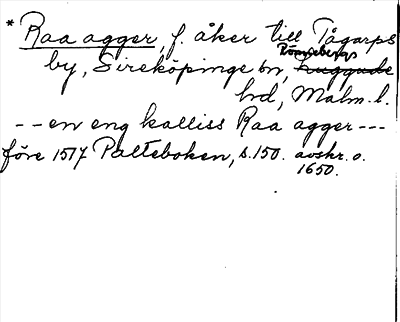 * Raa agger, f. åker till Tågarps
by, Sireköpinge sn, Rönnebergs
hd, Malm. l.
-- en eng kalliss Raa agger ---
före 1517 Palteboken, s. 150. avskr. o.
1650.